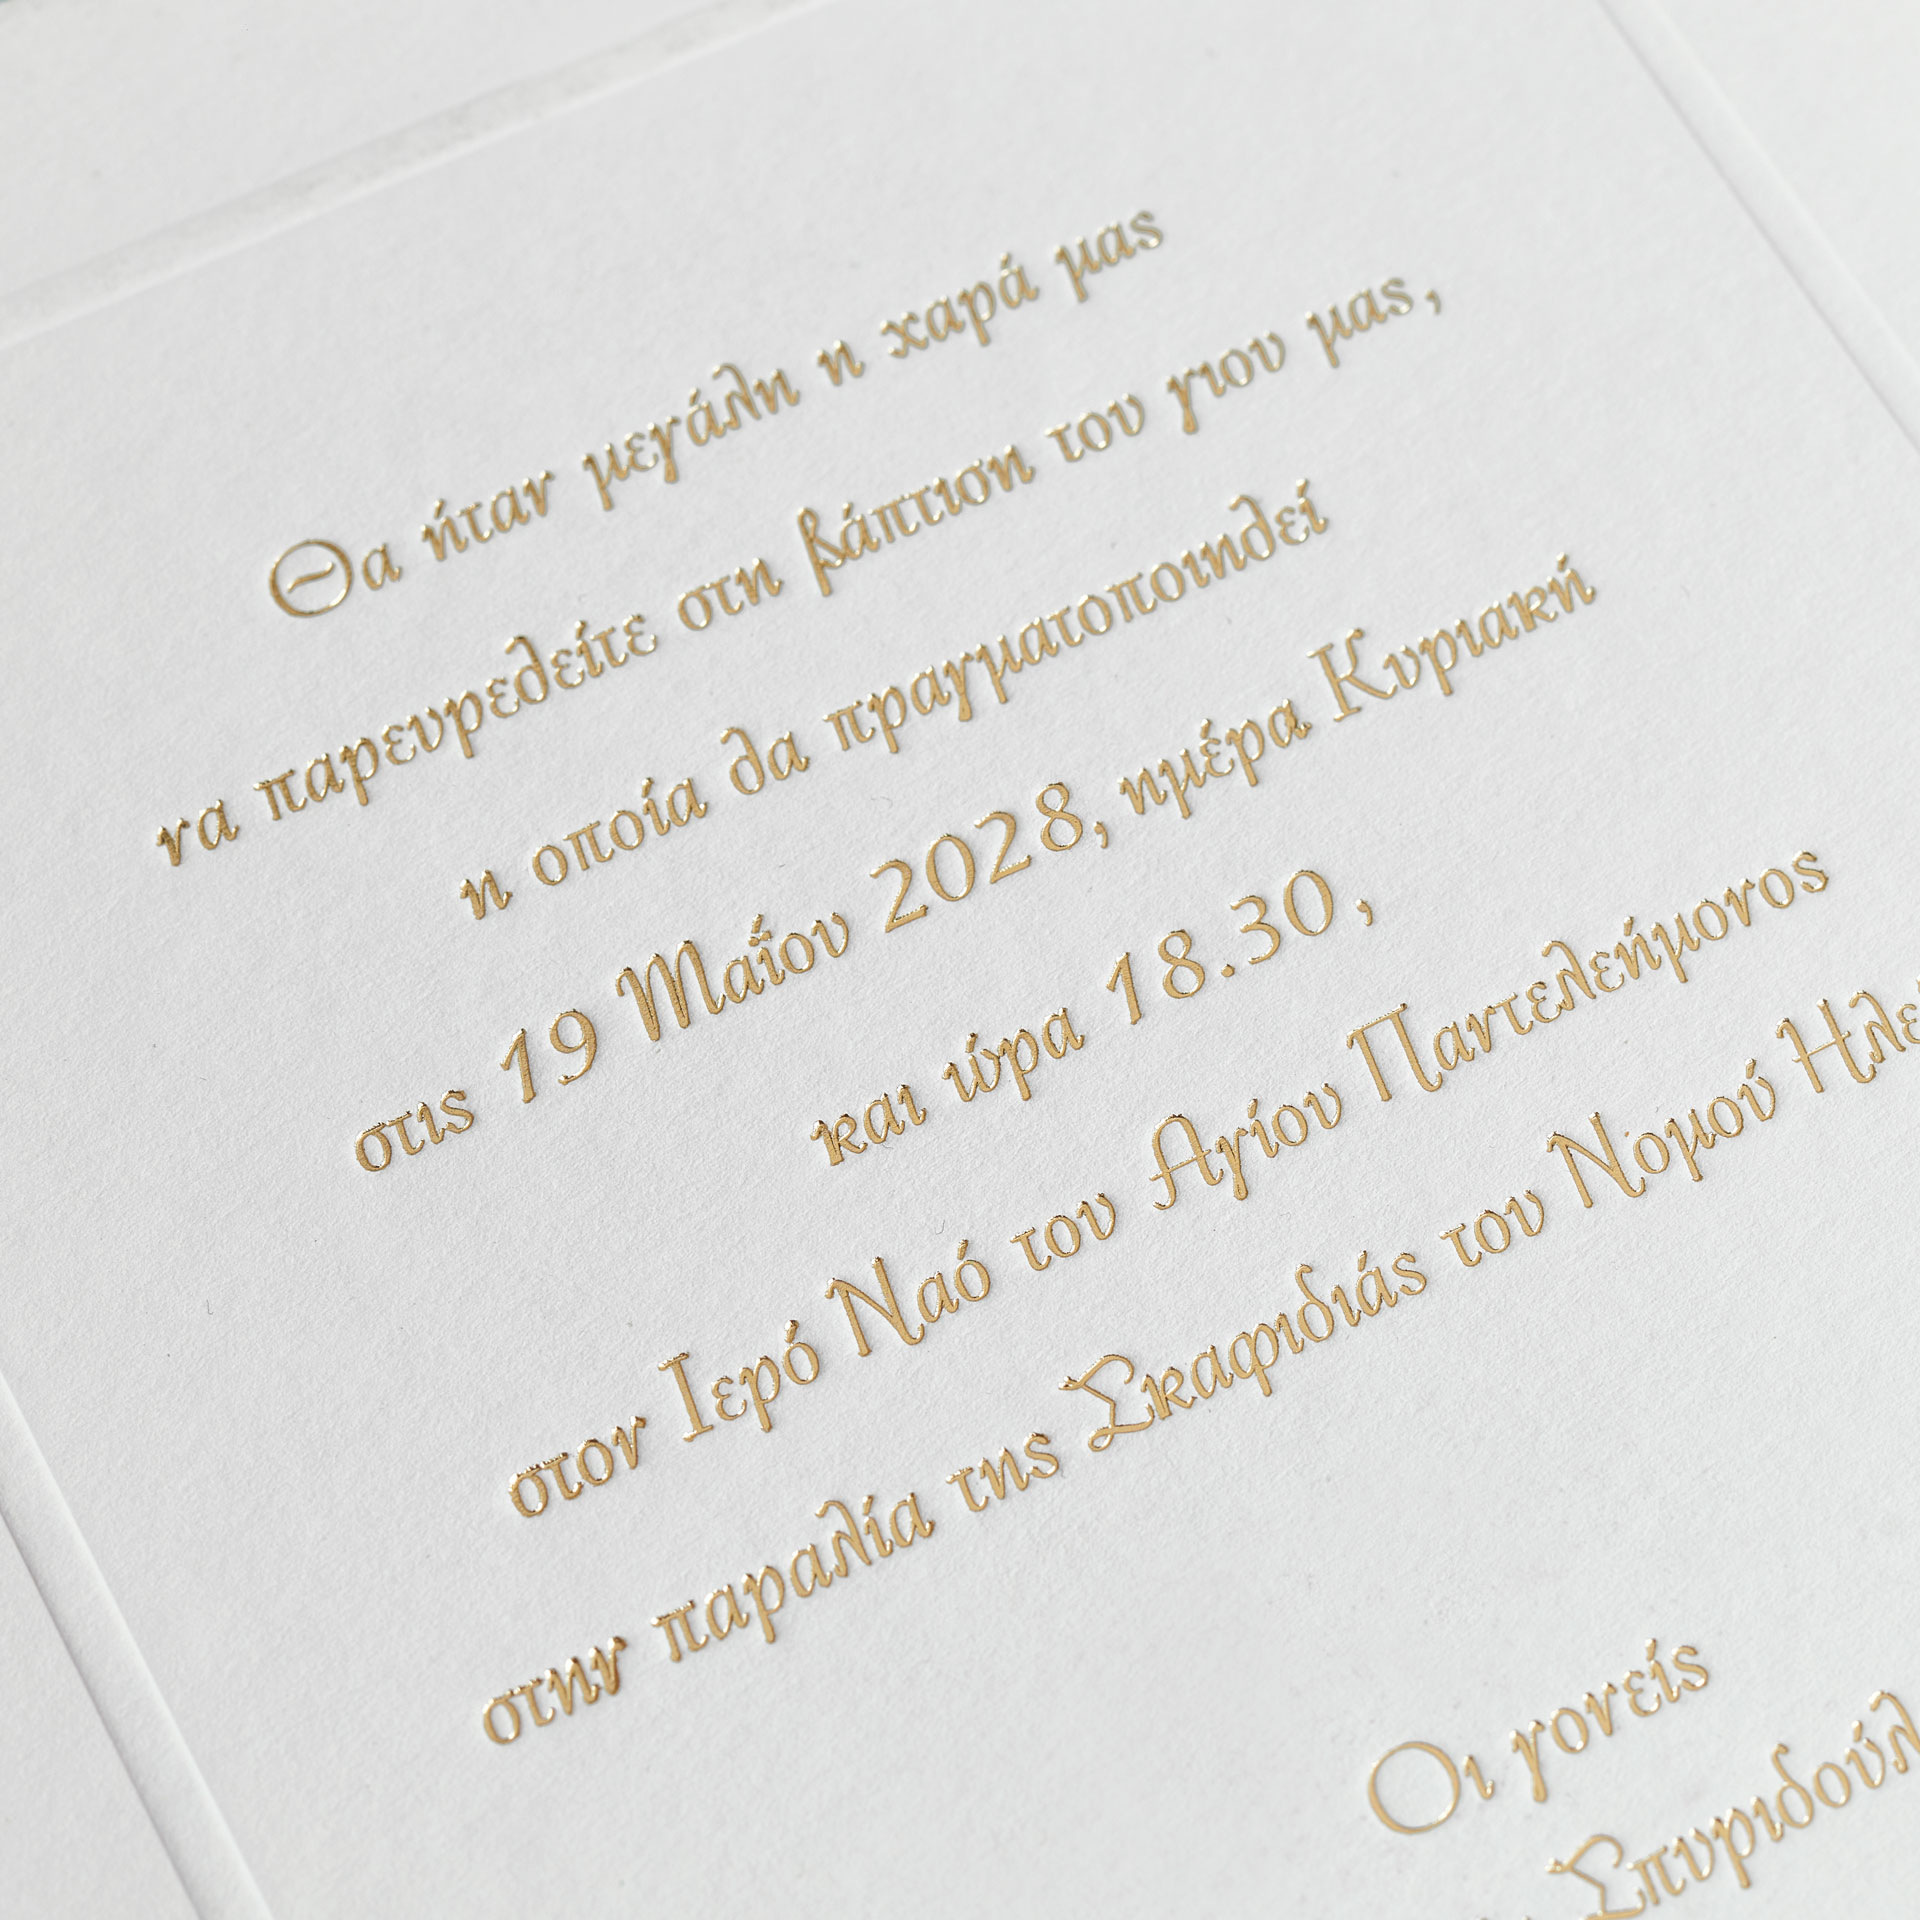 Θα ήταν μεγάλη η χαρά μας
να παρευρεθείτε στη βάπτιση του γιου μας,
η οποία θα πραγματοποιηθεί
στις 19 Μαΐου 2028, ημέρα Κυριακή
και ώρα 18.30,
στον Ιερό Ναό του Αγίου Παντελεήμονος
στην παραλία της Σκαφιδιάς του Νομού Ηλε
Οι γονείς
Σπυριδούλ